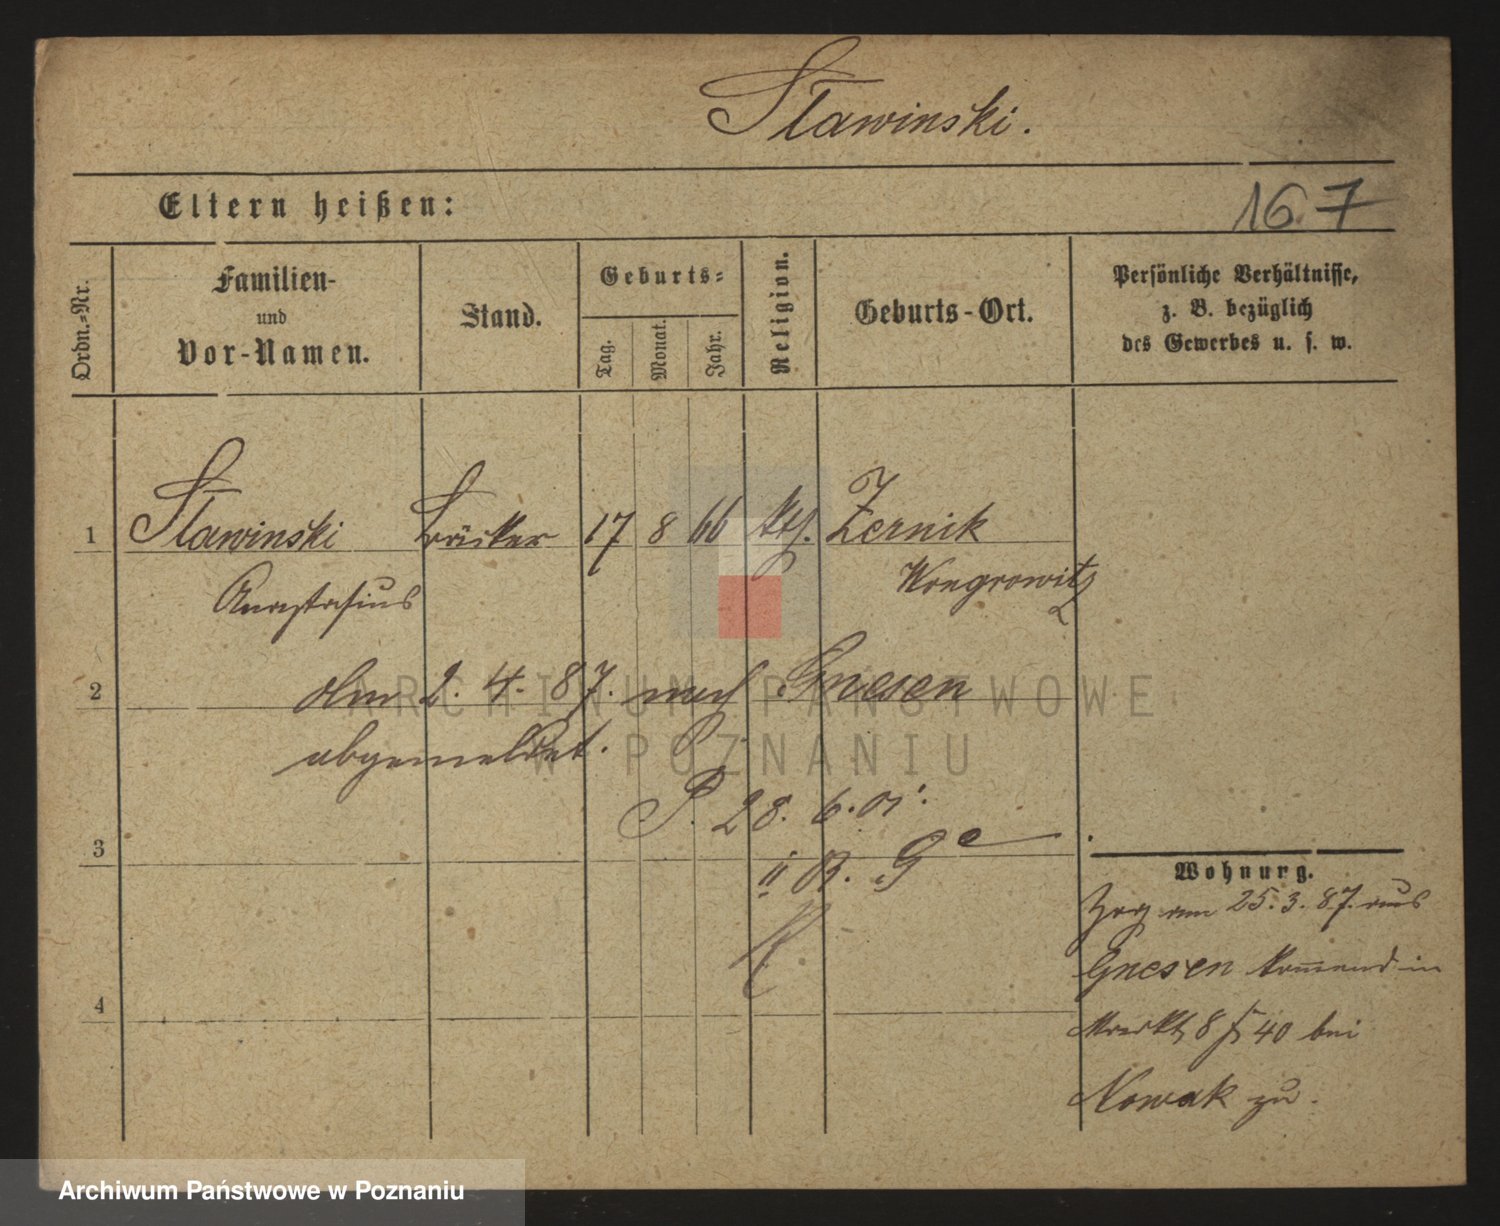 Sławinski.
Eltern heißen:
16.7
Ordn.-Nr.
Familien-
und
Vor-Namen.
Stand.
Geburts-
Tag.
Monat.
Jahr.
Religion.
Geburts-Ort.
Persönliche Verhältnisse,
z. B. bezüglich
des Gewerbes u. s. w.
1 Sławinski Bäcker 17 8 66 kth. Zernik
Anastasius Wongrowitz
2 Am 2. 4. 87. nach Gnesen
abgemeldet.
P. 28. 6. 01.
3
B. G
Wohnung.
Zog am 25. 3. 87. aus
Gnesen kommend in
4
Markt 8 40 bei
Nowak zu.
ARCHIWUM PAŃSTWOWE
W POZNANIU
Archiwum Państwowe w Poznaniu